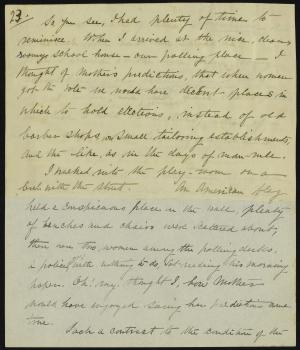 23.
So you see, I had plenty of time to
reminisce. When I arrived at the nice, clean,
roomy school house — our polling place — I
thought of Mother's prediction, that when women
got the vote we would have decent places in
which to hold elections, instead of old
barber shops or small tailoring establishments,
and the like, as in the days of man-rule.
I walked into the play-room on a
level with the street. An American flag
held a conspicuous place on the wall, plenty
of benches and chairs were scattered about,
there were two women among the polling clerks,
a police with nothing to do, sat reading his morning
paper. Oh! my! thought I, how Mother
would have enjoyed seeing her prediction come
true.
Such a contrast to the condition of the